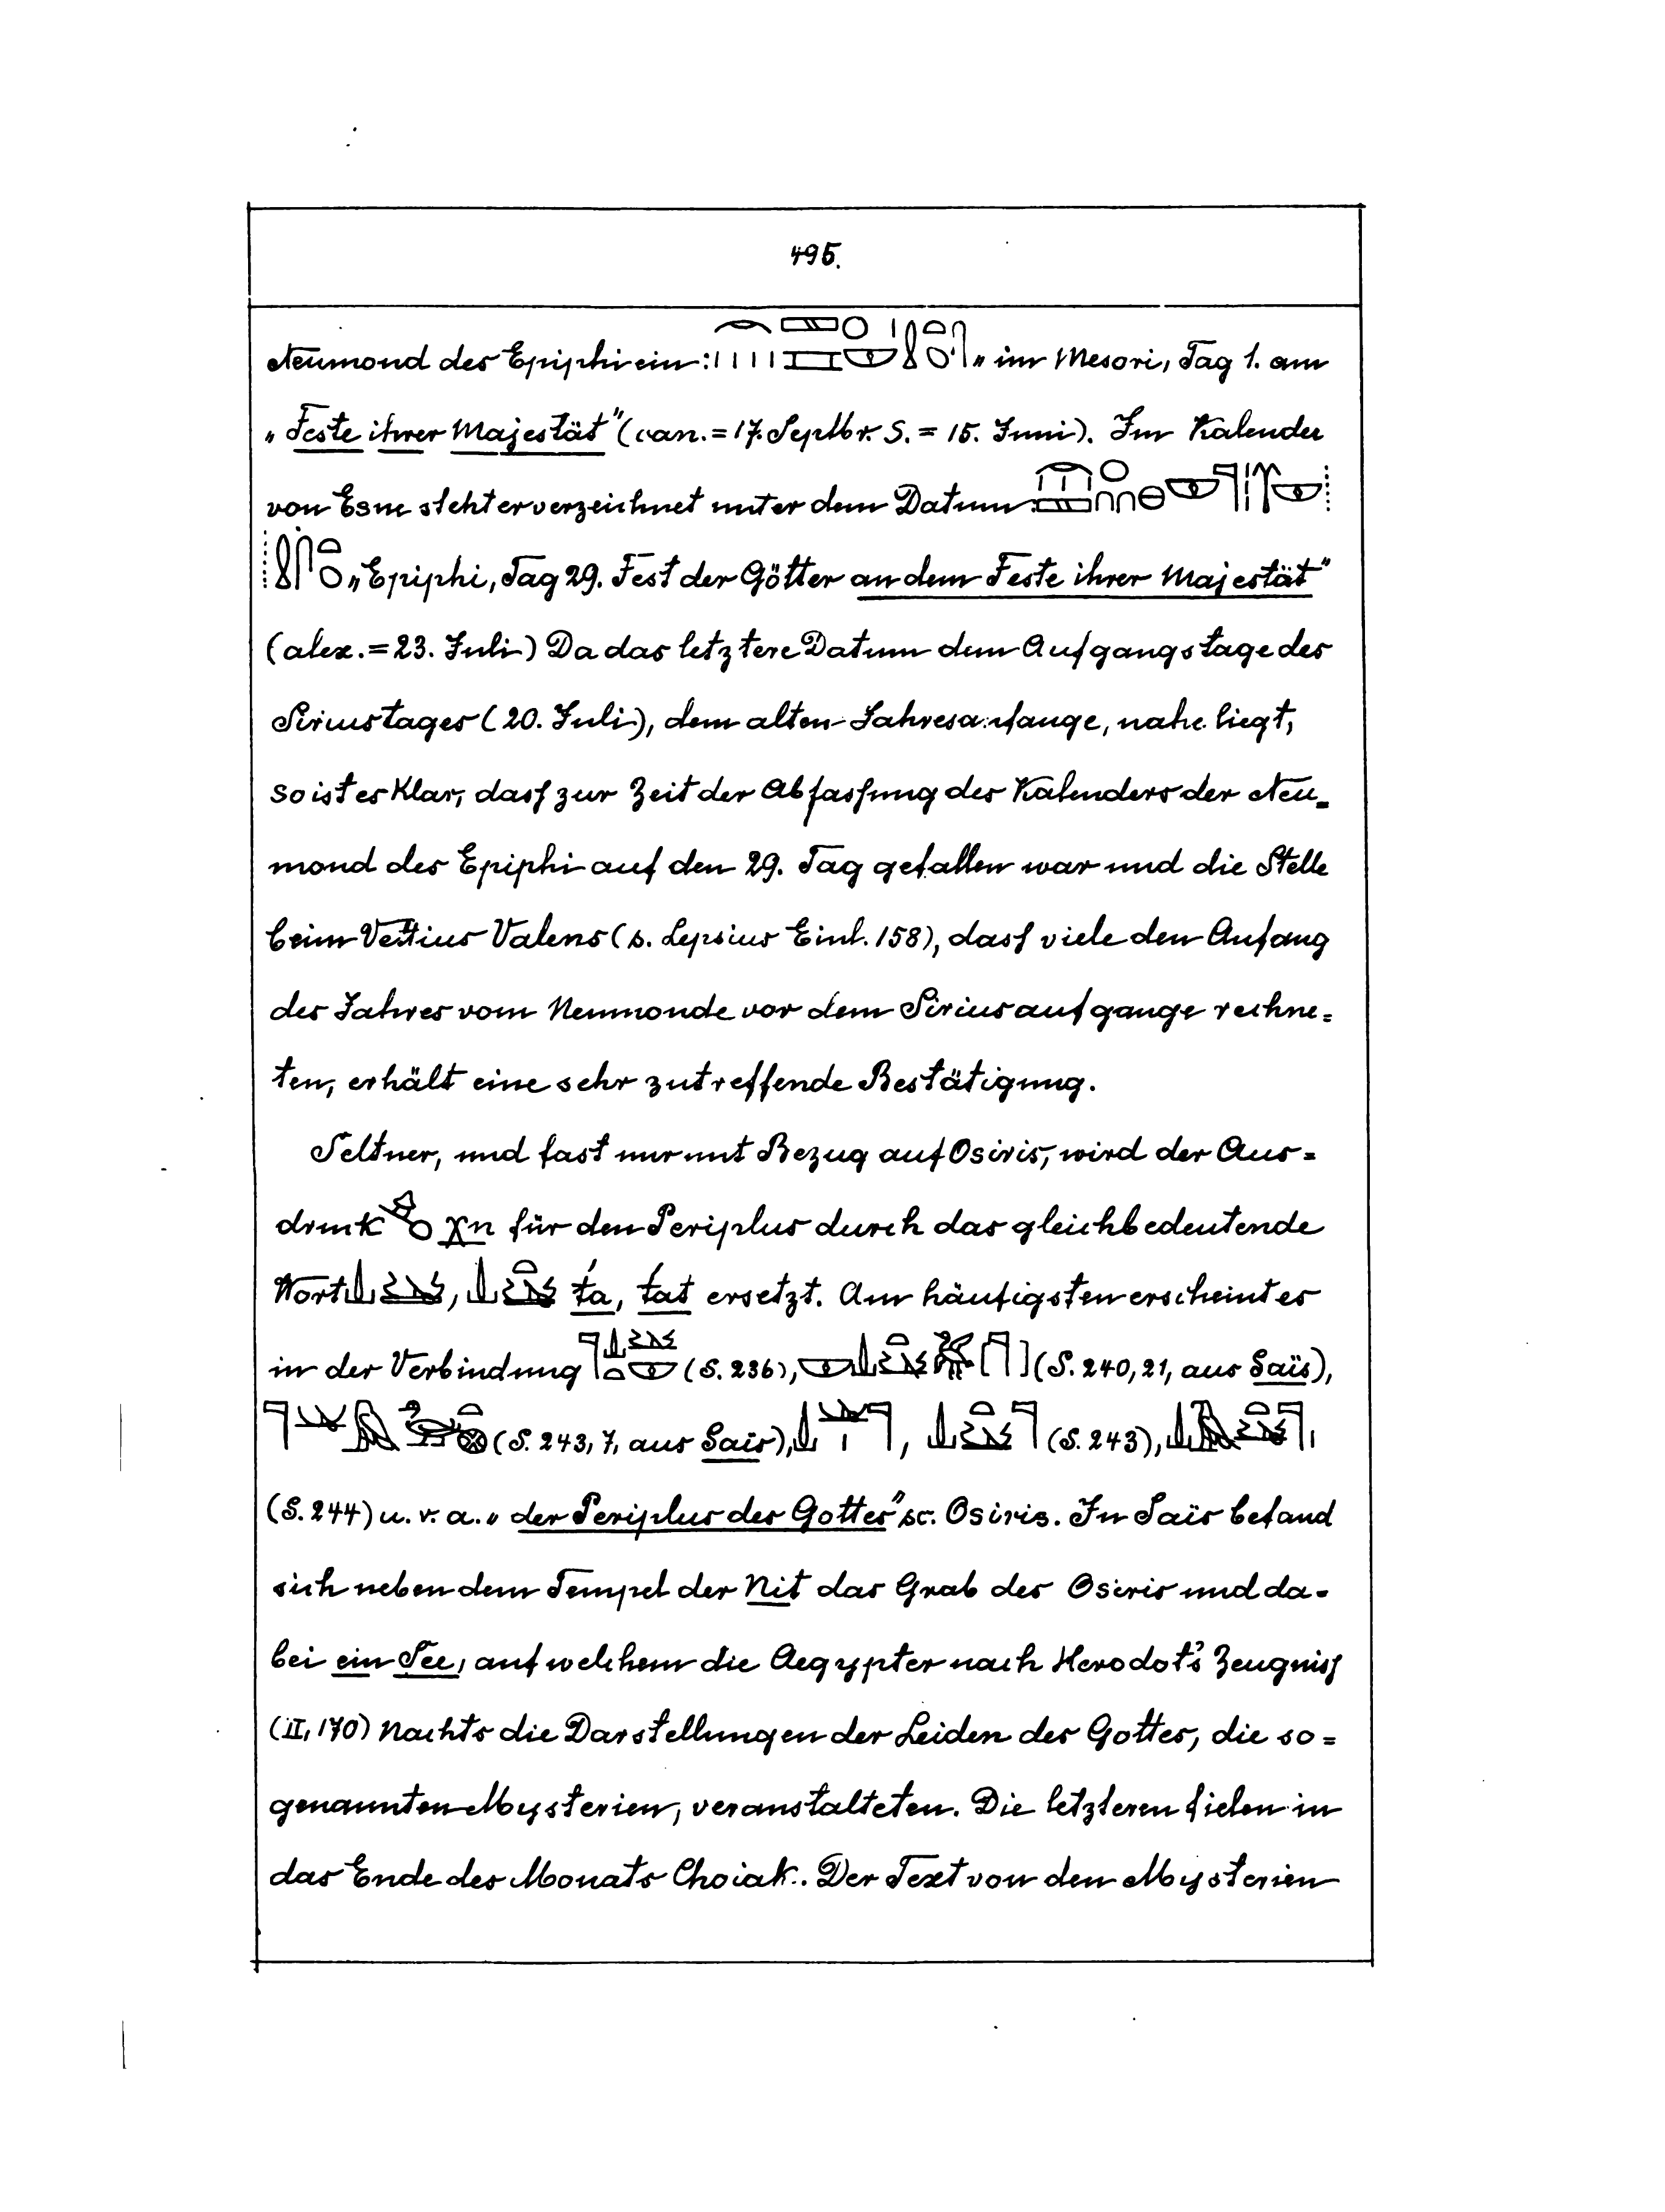 495.
Neumond des Epiphi ein: „im Mesori, Tag 1. am
„Feste ihrer Majestät" (can. = 17. Septbr. S. = 15. Juni). Im Kalender
von Esne steht er verzeichnet unter dem Datum:
„Epiphi, Tag 29. Fest der Götter an dem Feste ihrer Majestät"
(alex. = 23. Juli) Da das letztere Datum dem Aufgangstage des
Siriustages (20. Juli), dem alten Jahresanfange, nahe liegt,
so ist es klar, dass zur Zeit der Abfassung des Kalenders der Neu-
mond des Epiphi auf den 29. Tag gefallen war und die Stelle
beim Vettius Valens (s. Lepsius Einl. 158), dass viele den Anfang
des Jahres vom Neumonde vor dem Siriusaufgange rechne=
ten, erhält eine sehr zutreffende Bestätigung.
Seltner, und fast nur mit Bezug auf Osiris, wird der Aus=
druck χn für den Periplus durch das gleichbedeutende
Wort , t́a, t́at ersetzt. Am häufigsten erscheint es
in der Verbindung (S. 236), [ ] (S. 240, 21, aus Saïs),
(S. 243, 7, aus Saïs), , (S. 243),
(S. 244) u. v. a. „der Periplus des Gottes" sc. Osiris. In Saïs befand
sich neben dem Tempel der Nit das Grab des Osiris und da-
bei ein See, auf welchem die Aegypter nach Herodot's Zeugniss
(II, 170) Nachts die Darstellungen der Leiden des Gottes, die so=
genannten Mysterien, veranstalteten. Die letzteren fielen in
das Ende des Monats Choiak. Der Text von den Mysterien